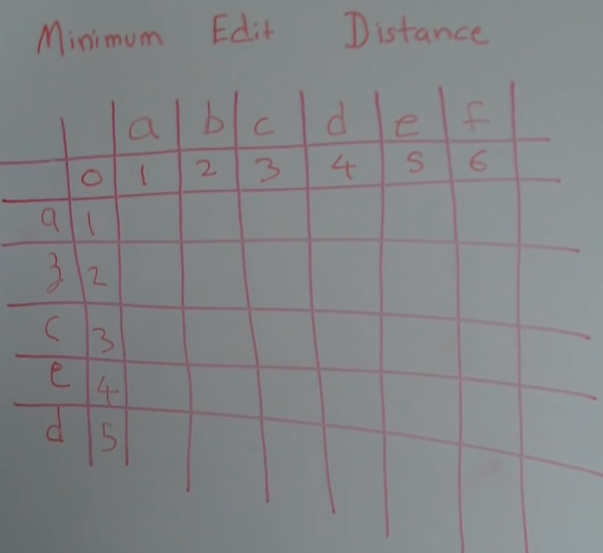 Minimum Edit Distance
a b c d e f
0 1 2 3 4 5 6
a 1
z 2
c 3
e 4
d 5